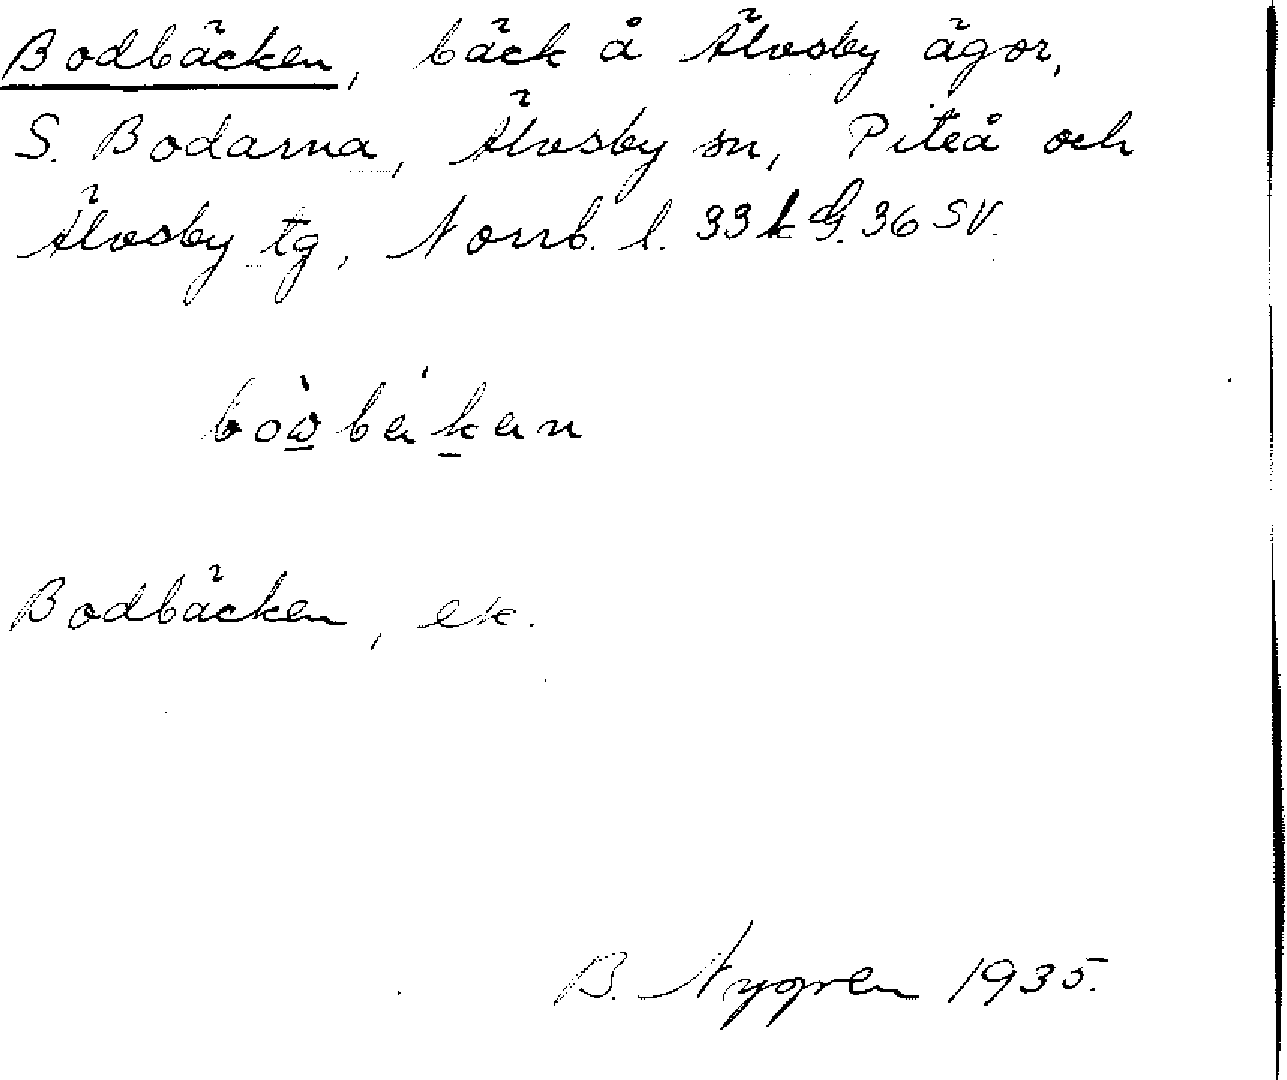 Bodbäcken, bäck å Älvsby ägor,
S. Bodarna, Älvsby sn, Piteå och
Älvsby tg, Norrb. l. 33 k G. 36 SV.
Bodbäcken, ek.
B. Nygren 1935.